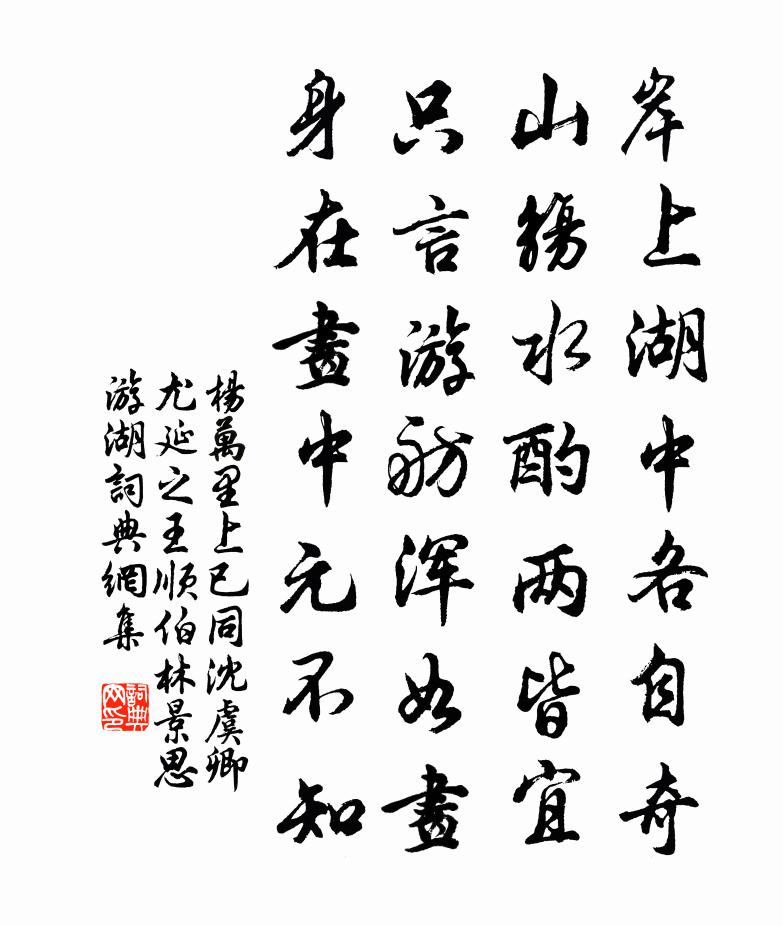 岸上湖中各自奇
山觴水酌两皆宜
只言游舫浑如畫
身在畫中元不知
楊萬里上巳同沈虞卿
尤延之王順伯林景思
游湖詞典網集
詞典
网印